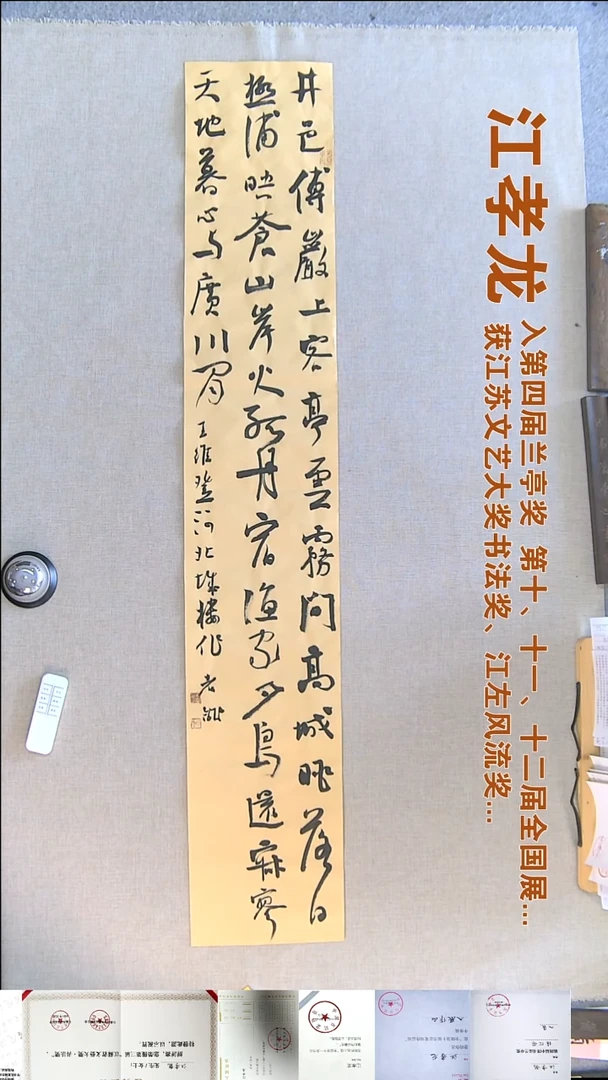 江孝龙
入第四届兰亭奖 第十、十一、十二届全国展...
获江苏文艺大奖书法奖、江左风流奖...
井邑傅巖上客亭雲霧間高城眺落日
極浦映蒼山岸火孤舟宿漁家夕鳥還寂寥
天地暮心与廣川閒 王維登河北城樓作 孝龍